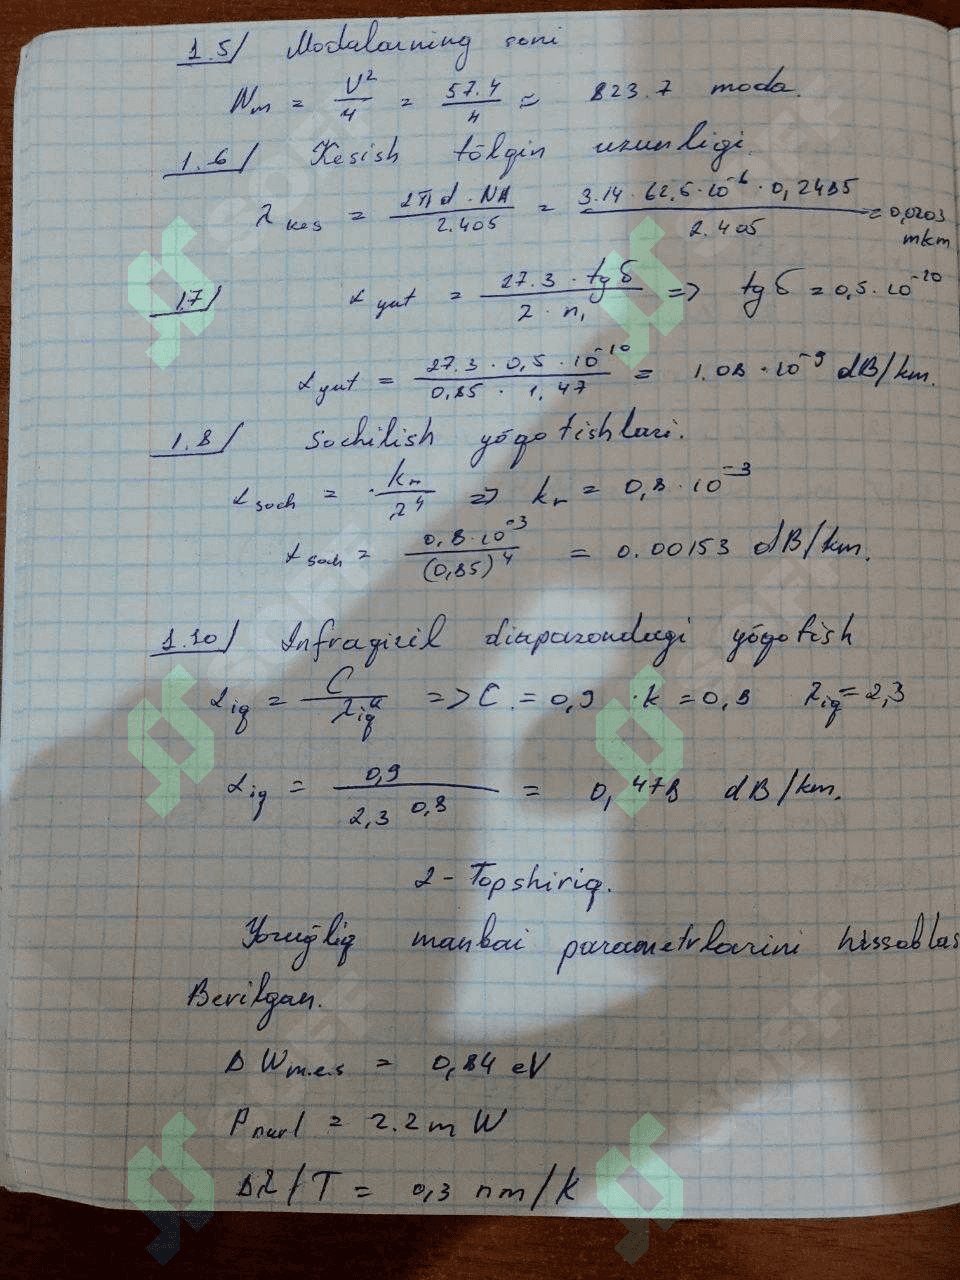 1.5/ Modalarning soni
Nm = V²/4 = 57.4/4 = 823.7 moda.
1.6/ Kesish to'lqin uzunligi.
λkes = 2πd·NA/2.405 = 3.14·62,5·10⁻⁶·0,2485/2.405 = 0,0203 mkm
1.7/ αyut = 27.3·tgδ/2·n₁ => tgδ = 0,5·10⁻¹⁰
αyut = 27.3·0,5·10⁻¹⁰/0,85·1,47 = 1.08·10⁻⁹ dB/km.
1.8/ Sochilish yo'qotishlari.
αsoch = kr/λ⁴ => kr = 0,8·10⁻³
αsoch = 0,8·10⁻³/(0,85)⁴ = 0.00153 dB/km.
1.10/ Infraqizil diapazondagi yo'qotish
αiq = C/λiqᵏ => C = 0,9 ·k = 0,8 λiq = 2,3
αiq = 0,9/2,3^0,8 = 0,478 dB/km.
2-Topshiriq.
Yorug'liq manbai parametrlarini hissoblas
Berilgan.
ΔWm.e.s = 0,84 eV
Pnurl = 2.2 mW
Δλ/T = 0,3 nm/k
SOFF
SOFF
SOFF
SOFF
SOFF
SOFF